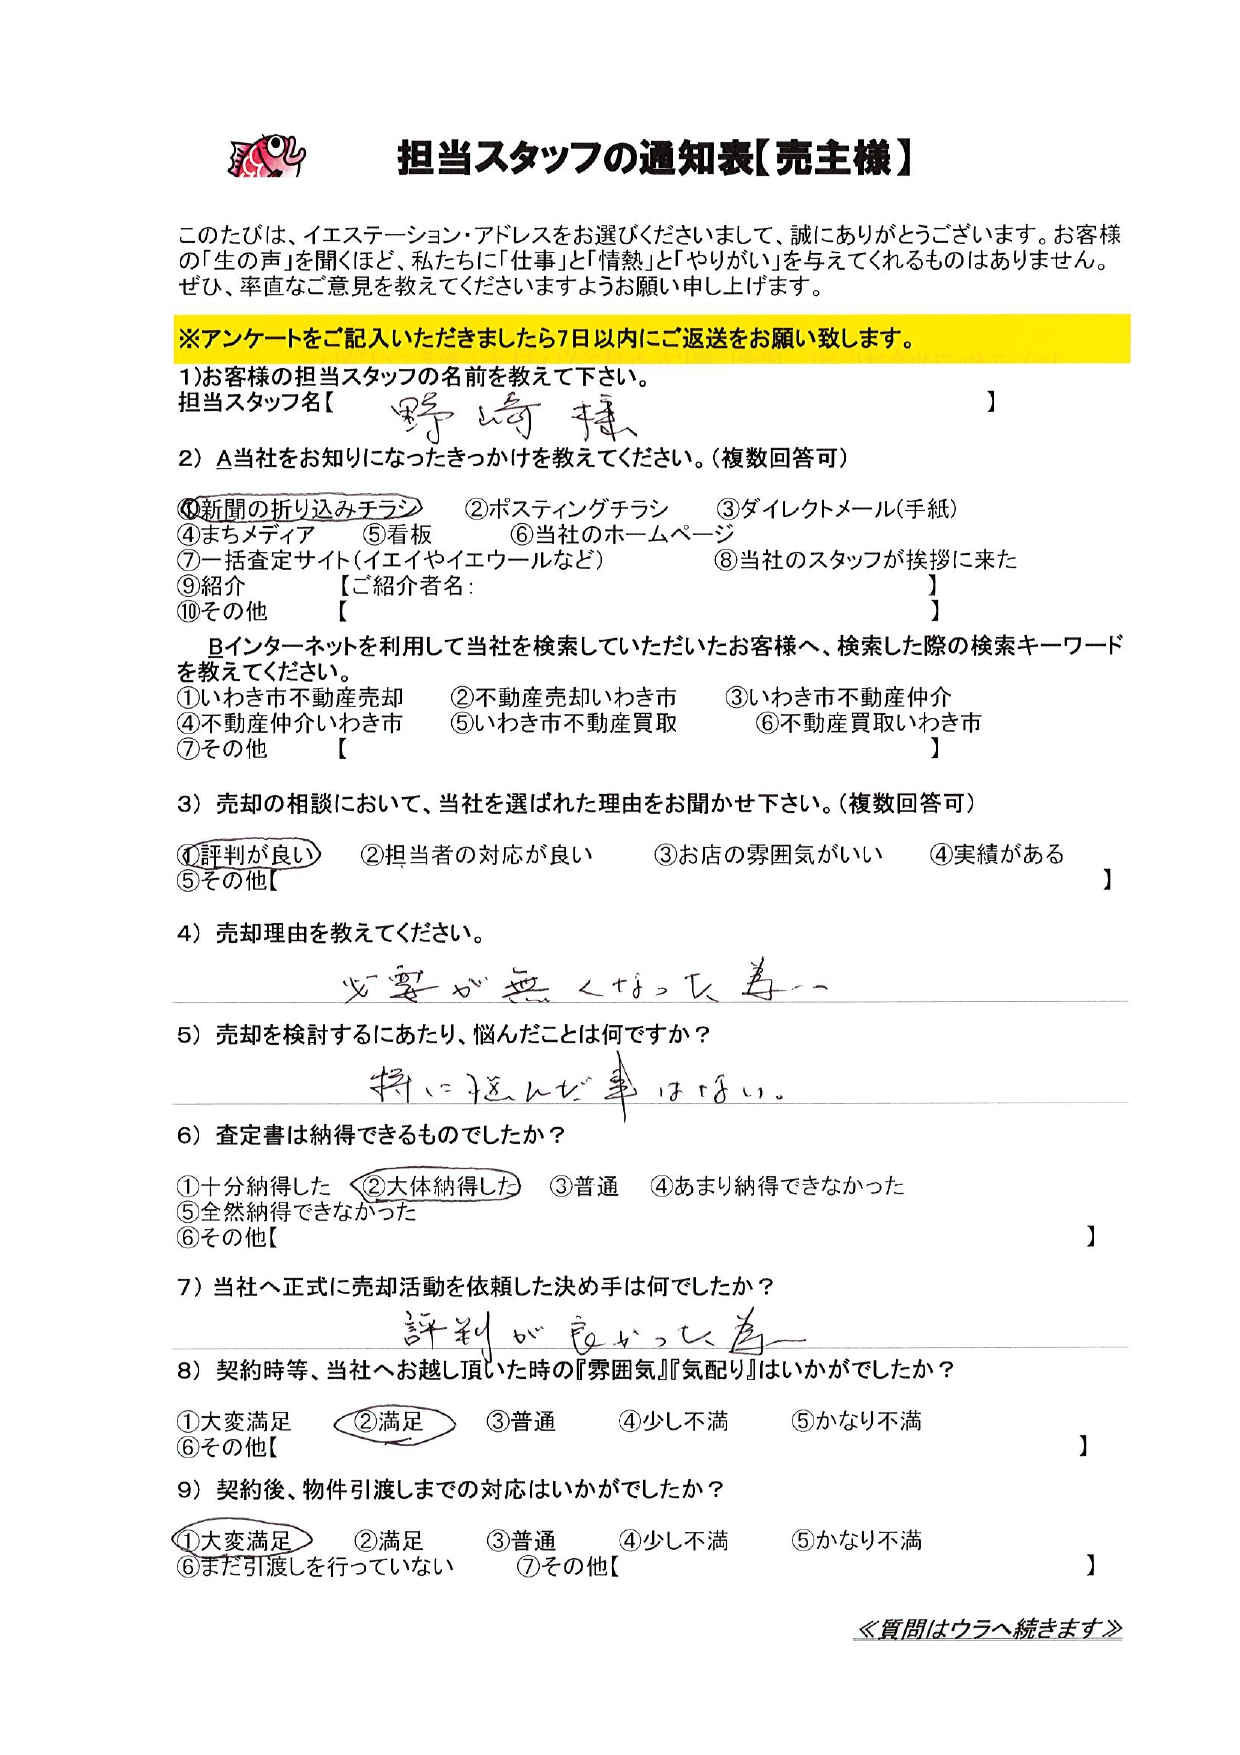 担当スタッフの通知表【売主様】
このたびは、イエステーション・アドレスをお選びくださいまして、誠にありがとうございます。お客様
の「生の声」を聞くほど、私たちに「仕事」と「情熱」と「やりがい」を与えてくれるものはありません。
ぜひ、率直なご意見を教えてくださいますようお願い申し上げます。
※アンケートをご記入いただきましたら7日以内にご返送をお願い致します。
1)お客様の担当スタッフの名前を教えて下さい。
担当スタッフ名【 野崎 様 】
2) A当社をお知りになったきっかけを教えてください。(複数回答可)
①新聞の折り込みチラシ ②ポスティングチラシ ③ダイレクトメール(手紙)
④まちメディア ⑤看板 ⑥当社のホームページ
⑦一括査定サイト(イエイやイエウールなど) ⑧当社のスタッフが挨拶に来た
⑨紹介 【ご紹介者名: 】
⑩その他 【 】
Bインターネットを利用して当社を検索していただいたお客様へ、検索した際の検索キーワード
を教えてください。
①いわき市不動産売却 ②不動産売却いわき市 ③いわき市不動産仲介
④不動産仲介いわき市 ⑤いわき市不動産買取 ⑥不動産買取いわき市
⑦その他 【 】
3) 売却の相談において、当社を選ばれた理由をお聞かせ下さい。(複数回答可)
①評判が良い ②担当者の対応が良い ③お店の雰囲気がいい ④実績がある
⑤その他【 】
4) 売却理由を教えてください。
必要が無くなった為
5) 売却を検討するにあたり、悩んだことは何ですか?
特に悩んだ事はない。
6) 査定書は納得できるものでしたか?
①十分納得した ②大体納得した ③普通 ④あまり納得できなかった
⑤全然納得できなかった
⑥その他【 】
7) 当社へ正式に売却活動を依頼した決め手は何でしたか?
評判が良かった為
8) 契約時等、当社へお越し頂いた時の『雰囲気』『気配り』はいかがでしたか?
①大変満足 ②満足 ③普通 ④少し不満 ⑤かなり不満
⑥その他【 】
9) 契約後、物件引渡しまでの対応はいかがでしたか?
①大変満足 ②満足 ③普通 ④少し不満 ⑤かなり不満
⑥まだ引渡しを行っていない ⑦その他【 】
≪質問はウラへ続きます≫